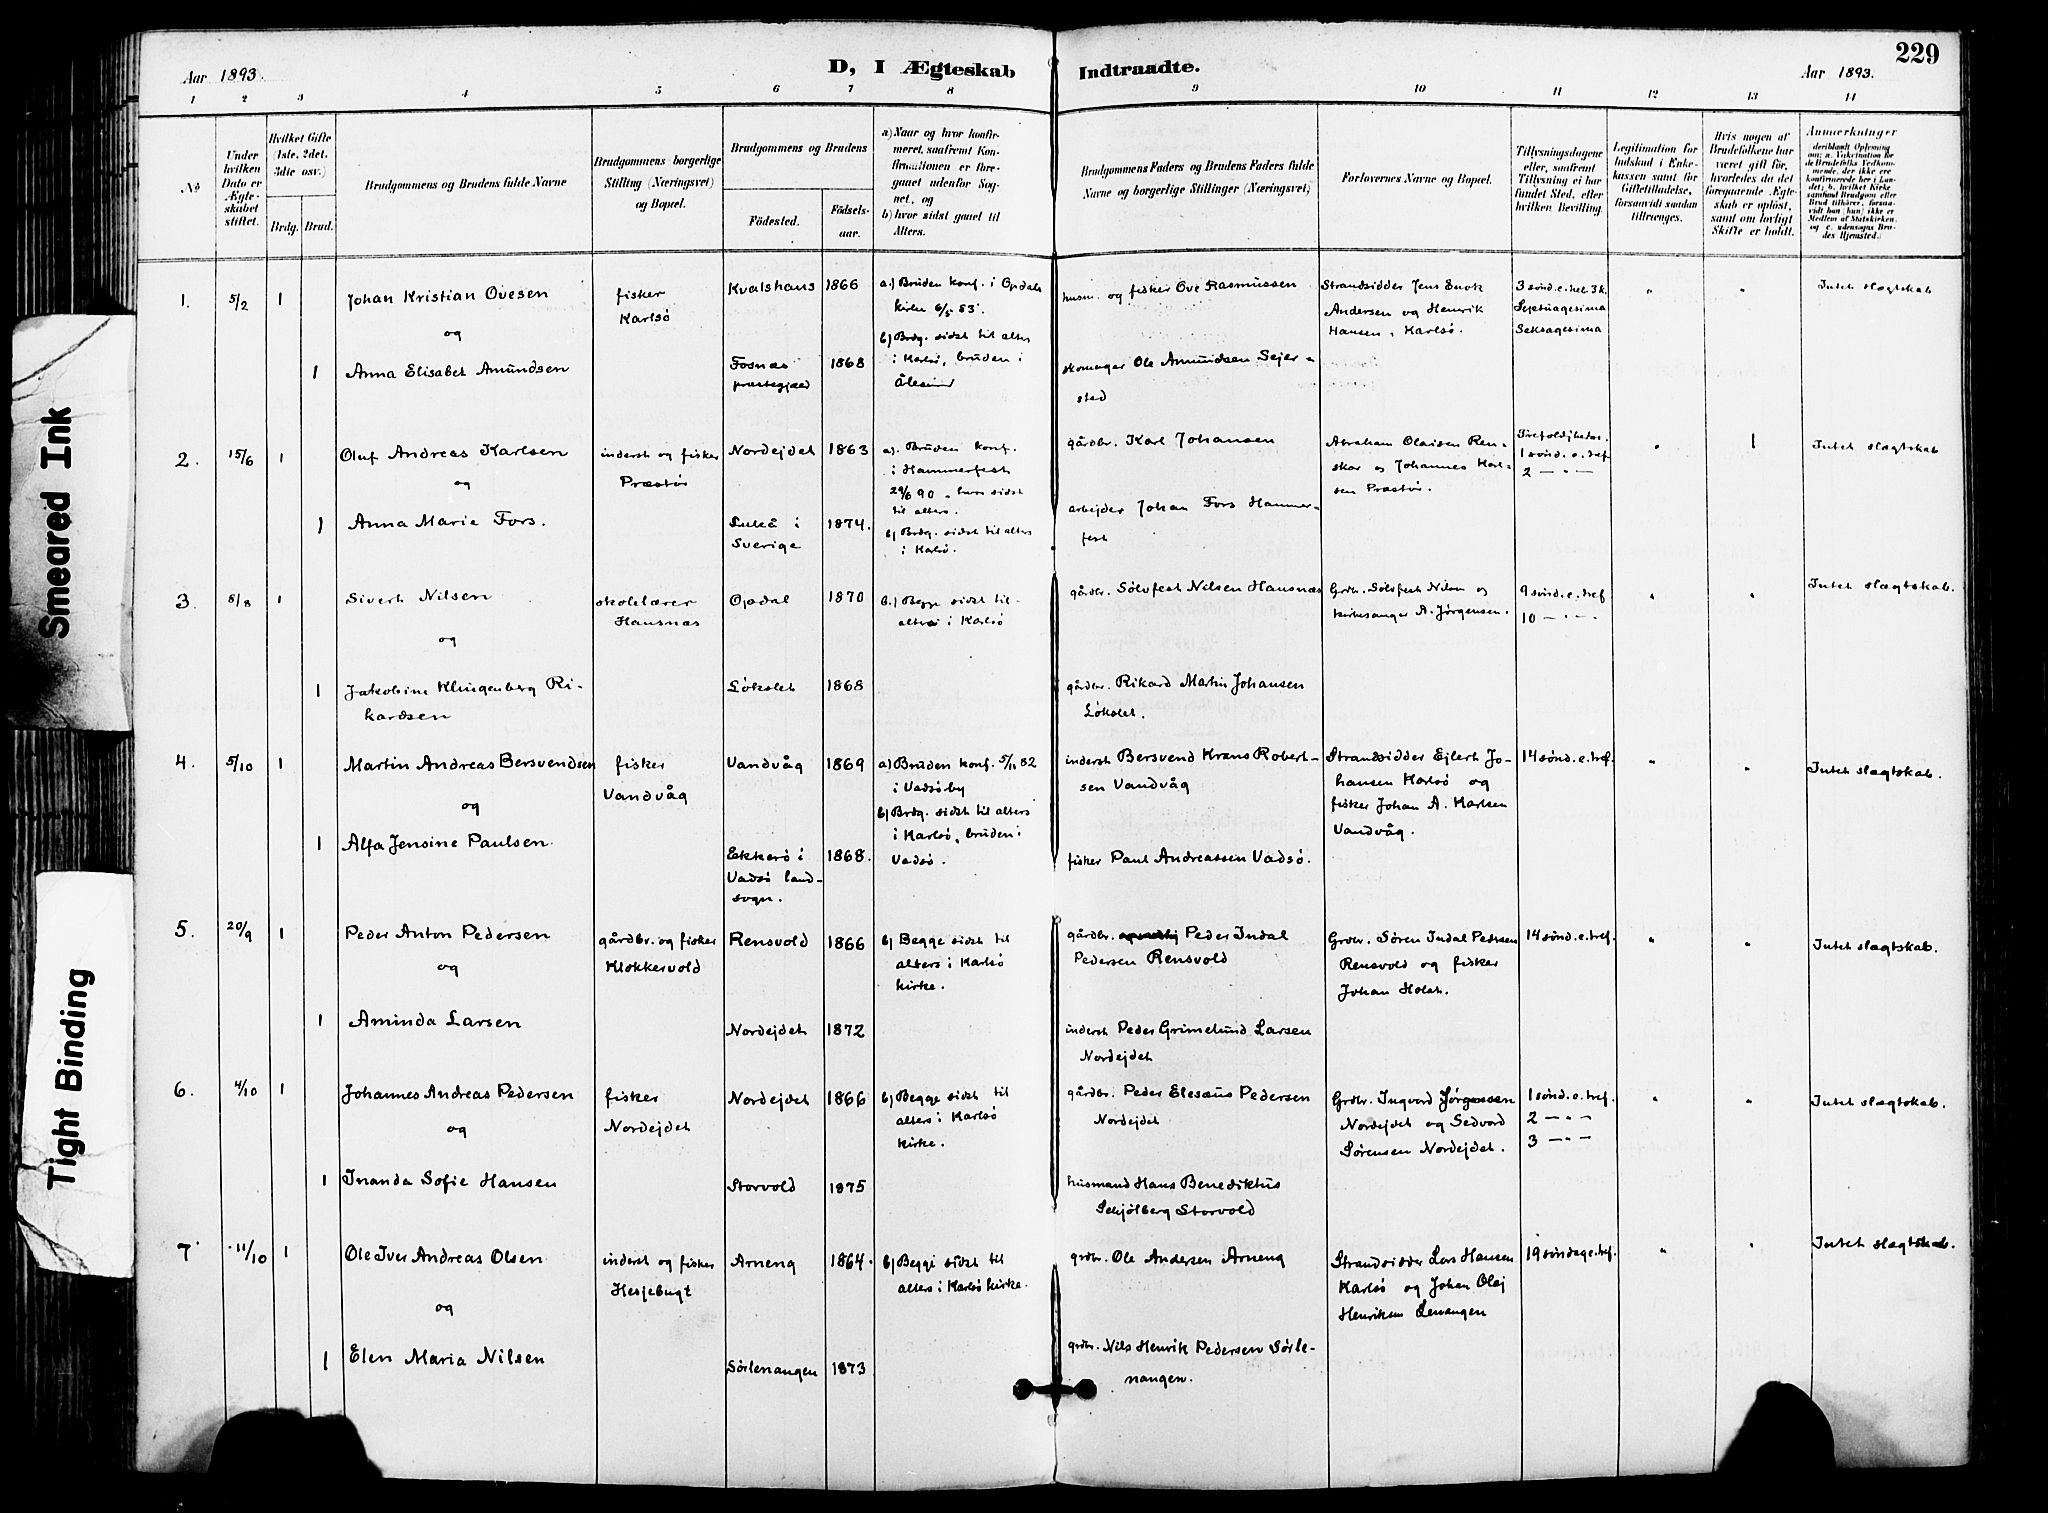 229
Aar 1893.
D, I Ægteskab Indtraadte.
Aar 1893.
1 2 3 4 5 6 7 8 9 10 11 12 13 14
№
Under hvilken Dato er Ægteskabet stiftet.
Hvilket Gifte (1ste, 2det, 3dte osv.)
Brdg. Brud.
Brudgommens og Brudens fulde Navne
Brudgommens borgerlige Stilling (Næringsvei) og Bopæl.
Brudgommens og Brudens
Födested.
Födselsaar.
a) Naar og hvor konfirmeret, saafremt Konfirmationen er foregaaet udenfor Sognet, og
b) hvor sidst gaaet til Alters.
Brudgommens Faders og Brudens Faders fulde Navne og borgerlige Stillinger (Næringsvei)
Forlovernes Navne og Bopæl.
Tillysningsdagene eller, saafremt Tillysning ei har fundet Sted, efter hvilken Bevilling.
Legitimation for Indskud i Enkekassen samt for Giftetilladelse, forsaavidt saadan tiltrænges.
Hvis nogen af Brudefolkene har været gift för, hvorledes da det foregaaende Ægteskab er oplöst, samt om lovligt Skifte er holdt.
Anmærkninger
deriblandt Oplysning om: a. Vakcination for de Brudefolks Vedkommende, der ikke ere konfirmerede her i Landet; b. hvilket Kirkesamfund Brudgom eller Brud tilhörer, forsaavidt han (hun) ikke er Medlem af Statskirken, og c. udensogns Brudes Hjemsted.
1. 5/2 1 Johan Kristian Ovesen
og
1 Anna Elisabet Amundsen
fisker
Karlsö
Kvalshaus 1866
Fosnæs 1868
præstegjæld
a.) Bruden konf. i Opdals
kirke 6/5 83.
b) Brdg. sidst til alters
i Karlsö, bruden i
Ålesund
husm. og fisker Ove Rasmussen
skomager Ole Amundsen Sejer-
sted
Strandsidder Jens Enok
Andersen og Henrik
Hansen, Karlsö.
3 sönd. e. hel. 3 k.
Septuagesima
Seksagesima
" "
Intet slægtskab
2. 15/6 1 Oluf Andreas Karlsen
og
1 Anna Marie Fors.
inderst og fisker
Præstöi
Nordejdet 1863
Luleå i 1874.
Sverige
a). Bruden konf.
i Hammerfest
29/6 90, hun sidst
til alters.
b) Brdg. sidst til alters
i Karlsö.
gårdbr. Karl Johansen
arbejder Johan Fors Hammer-
fest
Abraham Olaisen Ren-
skar og Johannes Karl-
sen Præstöi.
Trefoldighedss.
1 sönd. e. tref
2 — " —
"
Intet slægtskab
3. 8/8 1 Sivert Nilsen
og
1 Jakobine Klingenberg Ri-
kardsen
skolelærer
Hansnæs
Opdal 1870
Lökslet 1868
b.) Begge sidst til-
alters i Karlsö
gårdbr. Sölvfest Nilsen Hansnæs
gårdbr. Rikard Martin Johansen
Lökslet.
Grdbr. Sölvfest Nilsen og
kirkesanger A. Jörgensen.
9 sönd. e. tref
10 — " —
" "
Intet slægtskab.
4. 5/10 1 Martin Andreas Bersvendsen
og
1 Alfa Jensine Paulsen
fisker
Vandvåg
Vandvåg 1869
Ekkerö i 1868.
Vadsö land-
sogn.
a) Bruden konf. 5/11 82
i Vadsöby
b) Brdg. sidst til alters
i Karlsö, bruden i
Vadsö.
inderst Bersvend Krans Robert-
sen Vandvåg
fisker Paul Andreassen Vadsö.
Strandsidder Ejlert Jo-
hansen Karlsö og
fisker Johan A. Karlsen
Vandvåg.
14 sönd. e. tref.
" "
Intet slægtskab.
5. 20/9 1 Peder Anton Pedersen
og
1 Aminda Larsen
gårdbr. og fisker
Klokkervold
Rensvold 1866
Nordejdet 1872
b) Begge sidst til
alters i Karlsö
kirke.
gårdbr. Peder Indal
Pedersen Rensvold
inderst Peder Grimelund Larsen
Nordejdet
Grdbr. Sören Indal Pedersen
Rensvold og fisker
Johan Holst.
14 sönd. e. tref.
" "
Intet slægtskab.
6. 4/10 1 Johannes Andreas Pedersen
og
1 Inanda Sofie Hansen
fisker
Nordejdet
Nordejdet 1866
Storvold 1875
b) Begge sidst til
alters i Karlsö
kirke.
gårdbr. Peder Elesæus Pedersen
Nordejdet
husmand Hans Benediktus
Schjölberg Storvold
Grdbr. Ingvard Jörgensen
Nordejdet og Sedvard
Sörensen Nordejdet.
1 sönd. e. tref.
2 — " —
3 — " —
" "
Intet slægtskab.
7 11/10 1 Ole Iver Andreas Olsen
og
1 Elen Maria Nilsen
inderst og fisker
Hesjebugt
Arneng 1864.
Sörlenangen 1873
b) Begge sidst til
alters i Karlsö kirke.
grdbr. Ole Andersen Arneng
grdbr. Nils Henrik Pedersen Sörle-
nangen.
Strandsidder Lars Hansen
Karlsö og Johan Olaj
Henriksen Lenangen
19 söndag e. tref.
" "
Intet slægtskab.
Smeared Ink
Tight Binding